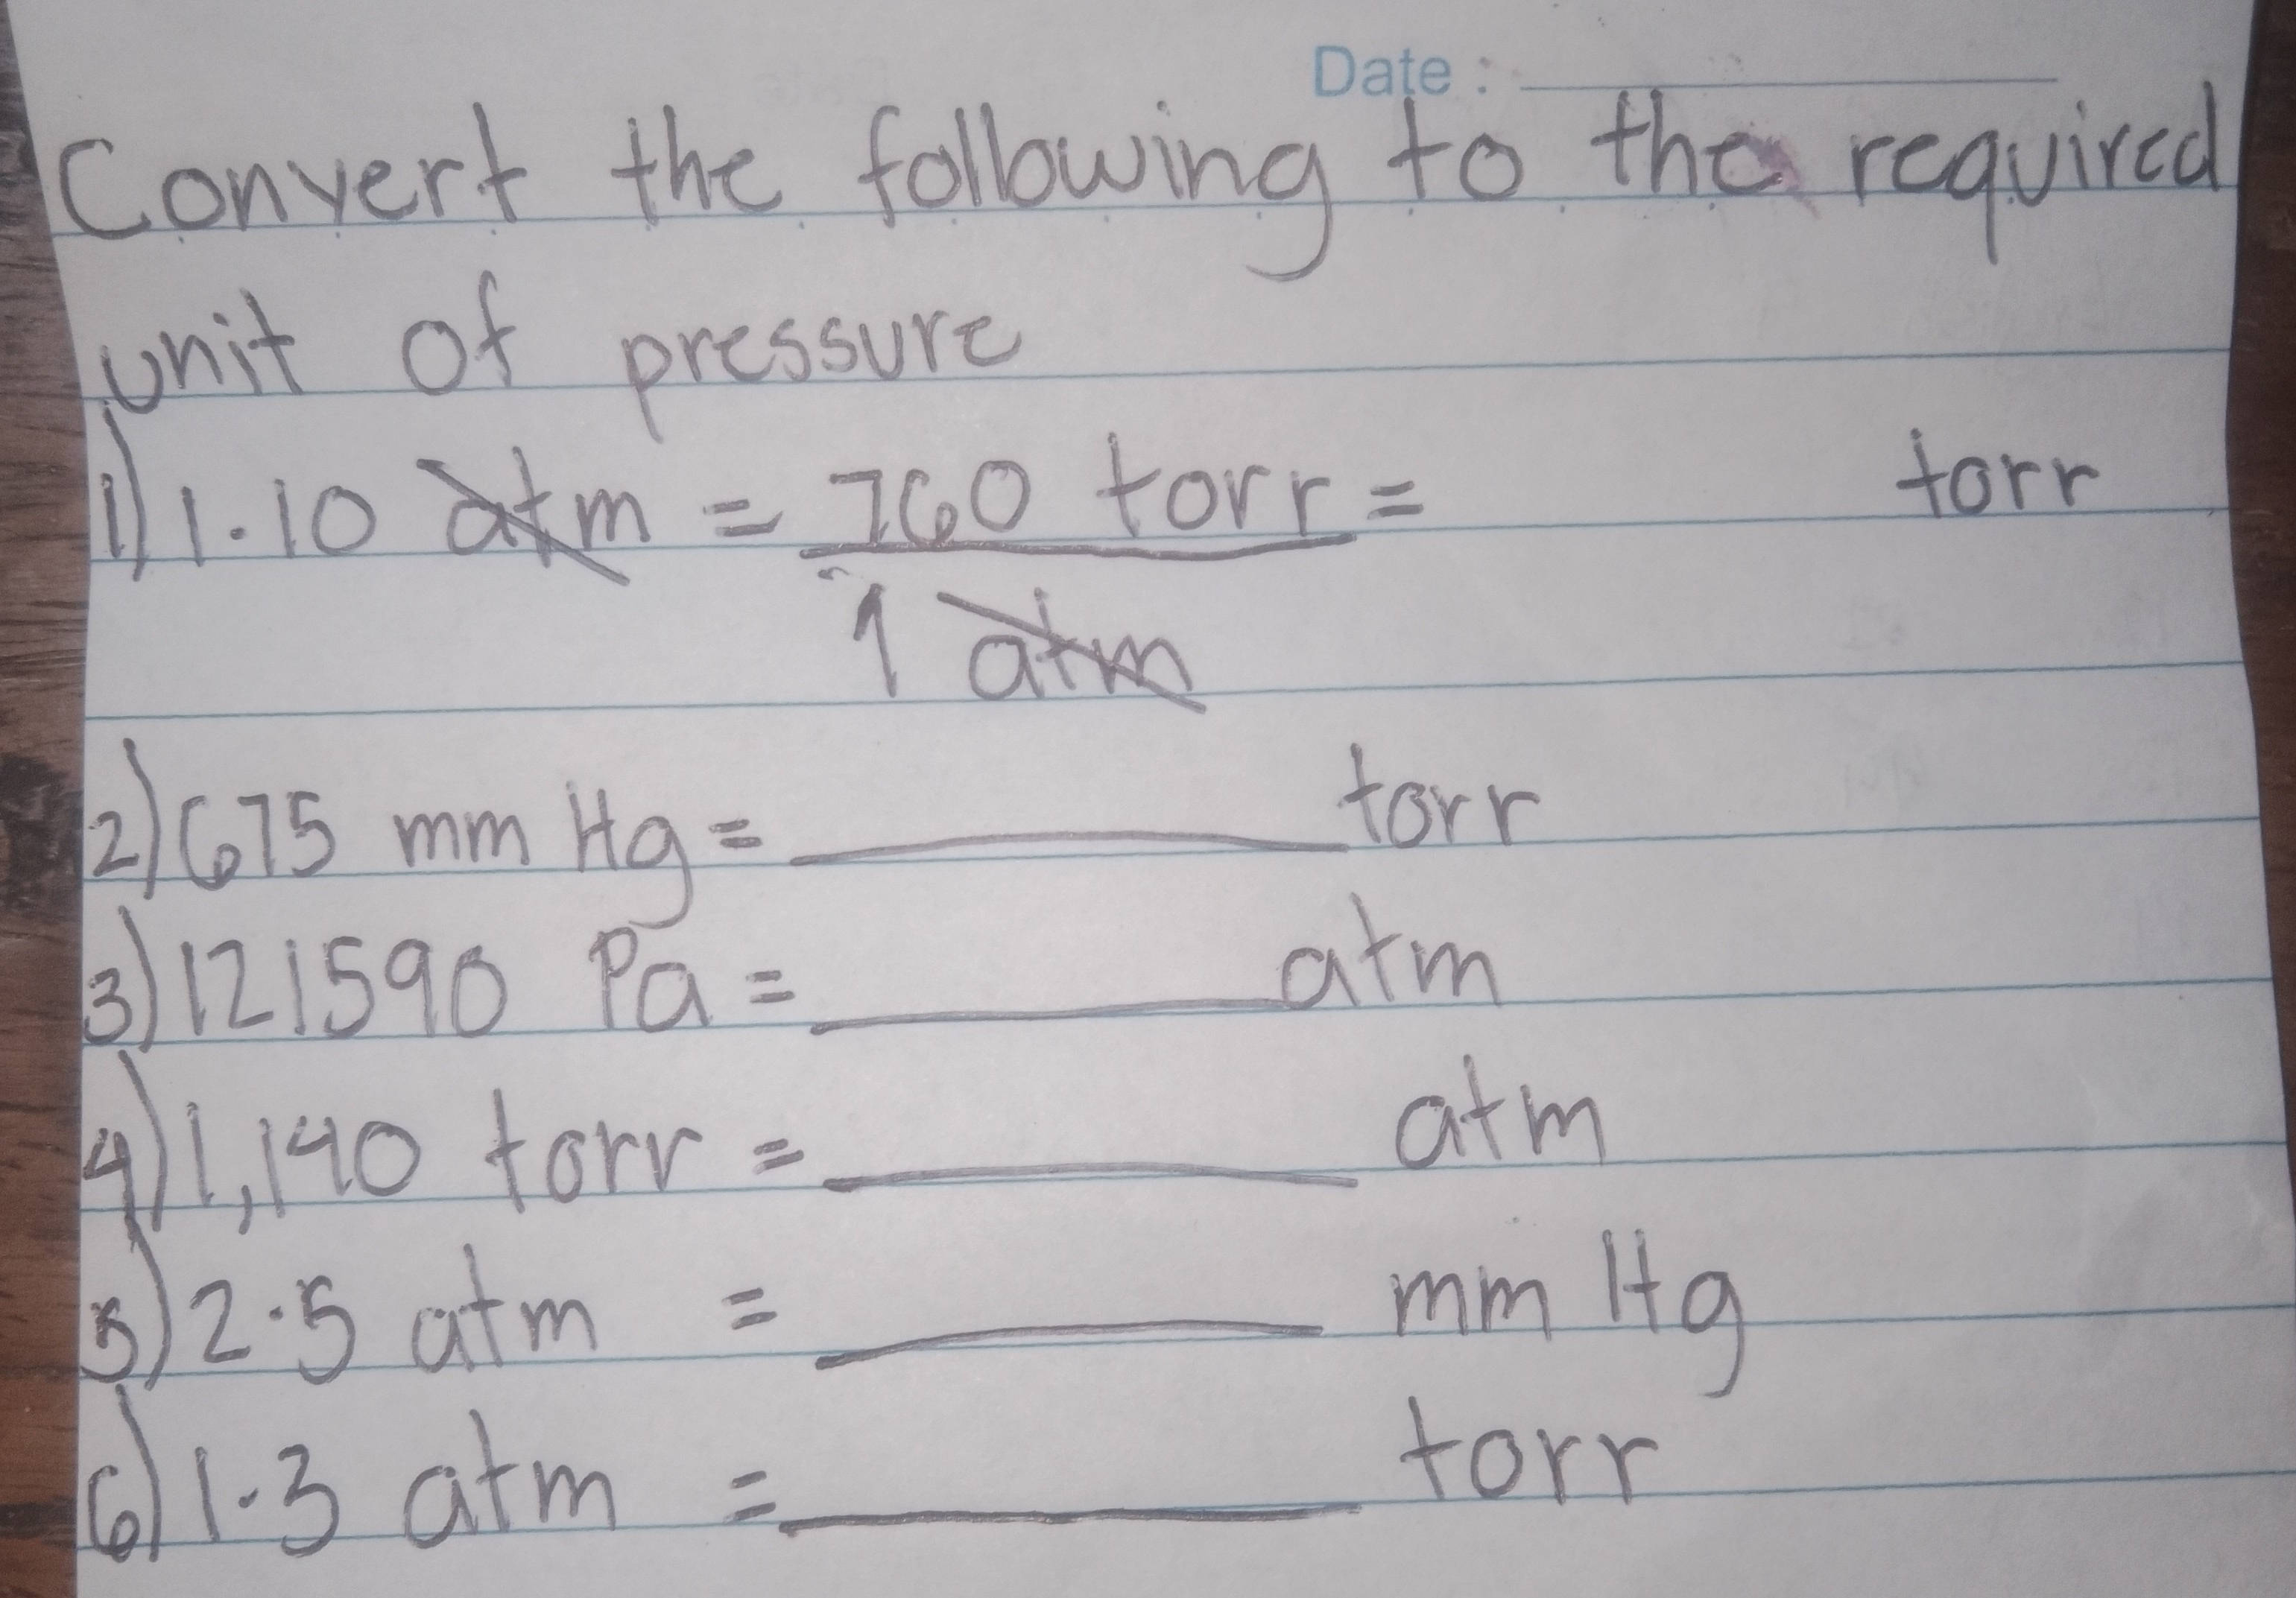 Date :
Convert the following to the required
unit of pressure
1) 1.10 atm = 760 torr = torr
1 atm
2) 675 mm Hg = torr
3) 121590 Pa = atm
4) 1,140 torr = atm
5) 2.5 atm = mm Hg
6) 1.3 atm = torr